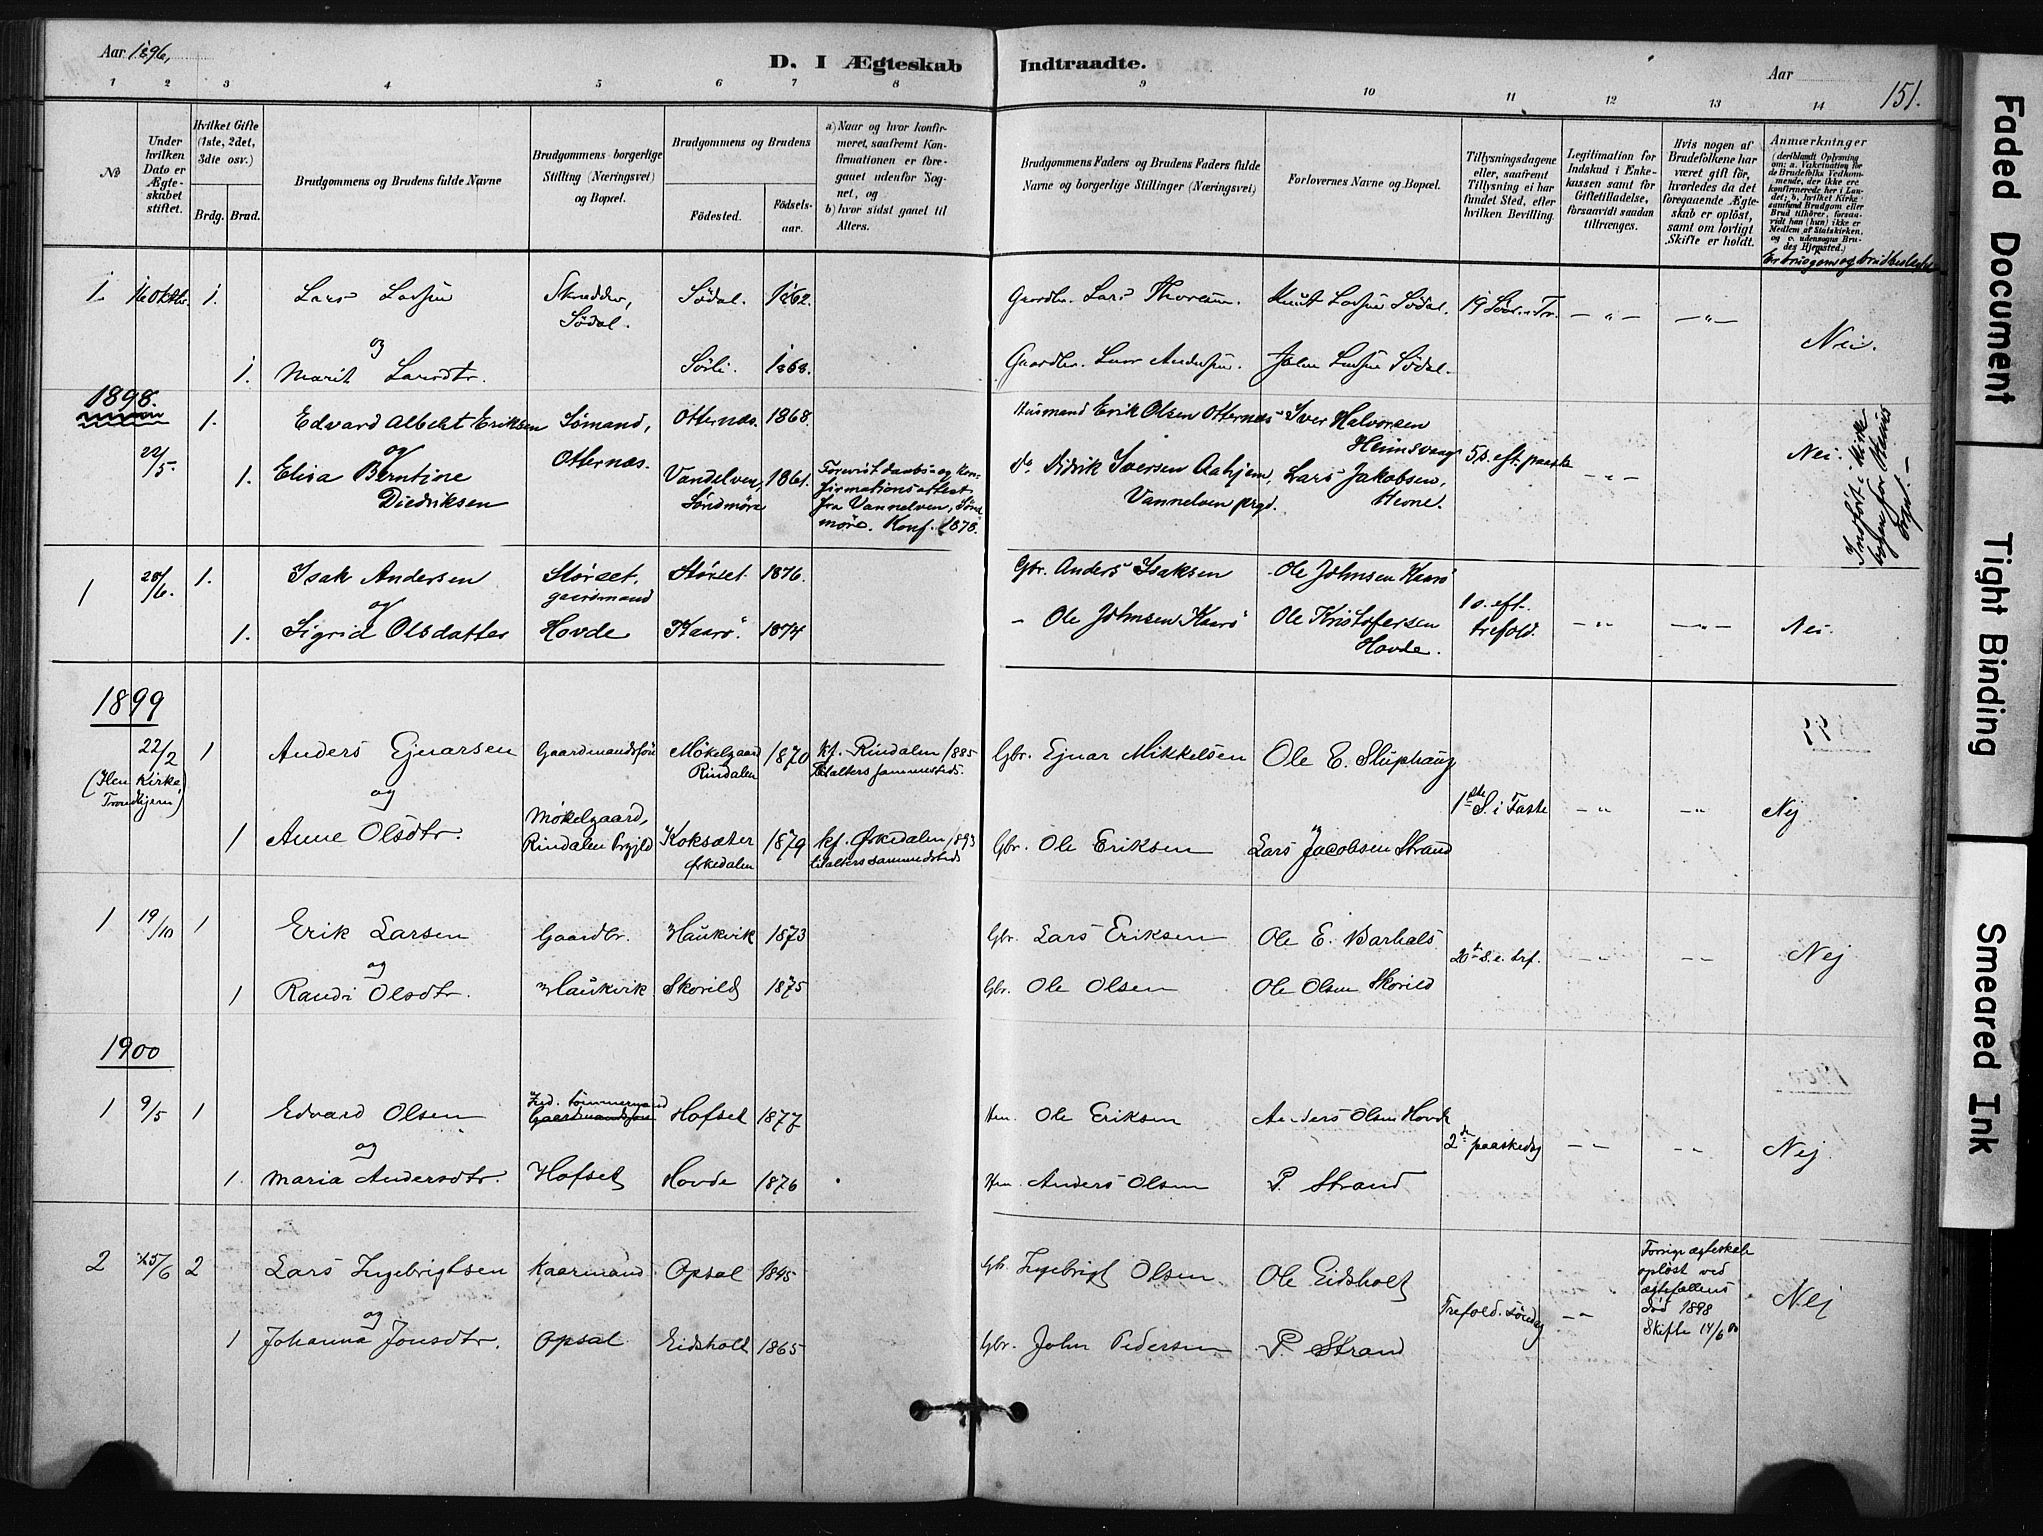 Aar 1896,
D. I Ægteskab Indtraadte.
Aar
151.
1 2 3 4 5 6 7 8 9 10 11 12 13 14
№
Under hvilken Dato er Ægteskabet stiftet.
Hvilket Gifte (1ste, 2det, 3die osv.)
Brdg. Brud.
Brudgommens og Brudens fulde Navne
Brudgommens borgerlige Stilling (Næringsvei) og Bopæl.
Brudgommens og Brudens
Fødested.
Fødselsaar.
a) Naar og hvor konfirmeret, saafremt Konfirmationen er foregaaet udenfor Sognet, og
b) hvor sidst gaaet til Alters.
Brudgommens Faders og Brudens Faders fulde Navne og borgerlige Stillinger (Næringsvei)
Forlovernes Navne og Bopæl.
Tillysningsdagene eller, saafremt Tillysning ei har fundet Sted, efter hvilken Bevilling.
Legitimation for Indskud i Enkekassen samt for Giftetilladelse, forsaavidt saadan tiltrænges.
Hvis nogen af Brudefolkene har været gift før, hvorledes da det foregaaende Ægteskab er opløst, samt om lovligt Skifte er holdt.
Anmærkninger
(deriblandt Oplysning om: a. Vakcination for de Brudefolks Vedkommende, der ikke ere konfirmerede her i Landet; b. hvilket Kirkesamfund Brudgom eller Brud tilhører, forsaavidt han (hun) ikke er Medlem af Statskirken, og c. udensogns Brudes Hjemsted.)
1. 16 Oktbr. 1. Lars Larsen Skrædder, Sødal. Sødal. 1862. Gaardbr. Lars Knut Larsen Sødal. 19 Sønd. e. Tr. — „ — — „ —
og
1. Marit Larsdtr. Sørli. 1868. Gaardbr. Lars Andersen John Larsen Sødal. Nei.
1898.
22/5. 1. Edvard Albert Eriksen Sømand, Otternæs. Otternæs. 1868. Husmand Erik Olsen Otternæs Iver Halvorsen Heimsvaag 5 s. eft. paaske Nei.
og
1. Elisa Berntine Diedriksen Vandelven, Søndmøre 1861. Forevist daabs- og konfirmationsattest fra Vannelven, Søndmøre. Konf. 1878. do Didrik Iversen Aahjem, Vannelven prgd. Lars Jakobsen, Hevne. — „ —
Indført i kirkebogen for Hevne sogn. —
1 28/6. 1. Isak Andersen Størset, gaardmand Størset. 1876. Gbr. Anders Isaksen Ole Johnsen Kaarø
og
1. Sigrid Olsdatter Hovde Kaarø. 1874 — Ole Johnsen Kaarø Ole Kristofersen Hovde. 1 s. eft. trefold. — „ — — „ — Nei.
1899
22/2 1 Anders Ejnarsen Gaardmandssøn Møkelgaard Rindalen 1870 kf. Rindalen 1885 Gbr. Ejnar Mikkelsen Ole E. Sluphaug
(Ilen Kirke Trondhjem) og
1 Anne Olsdtr. Møkelgaard, Rindalen Prgjld Koksæter Ørkedalen 1879 kf. Ørkedalen 1893 til alters sammesteds Gbr. Ole Eriksen Lars Jacobsen Strand 1ste S. i Faste — „ — „ Nej
1 19/10 1 Erik Larsen Gaardbr. Haukvik 1873 Gbr. Lars Eriksen Ole E. Barhals
og
1 Randi Olsdtr. Haukvik Skorild 1875 Gbr. Ole Olsen Ole Olsen Skorild 20de S. e. trf. — „ — „ Nej
1900
1 9/5 1 Edvard Olsen Ind. tømmermand Gaardmandssøn Hofset 1877 Hm. Ole Eriksen Anders Olsen Hovde
og
1. Maria Andersdtr. Hofset Hovde 1876 Hm. Anders Olsen P. Strand 2de paaskedag — „ — „ Nej
2 25/6 2 Lars Ingebrigtsen Kaarmand Opsal 1845 Gbr. Ingebrigt Olsen Ole Eidsholt Forrige ægteskab opløst ved ægtefællens død 1898 Skifte 14/6 00
og
1 Johanna Jonsdtr. Opsal Eidsholt 1865 Gbr. John Pedersen P. Strand Trefold. søndag — „ Nej
Faded Document
Tight Binding
Smeared Ink